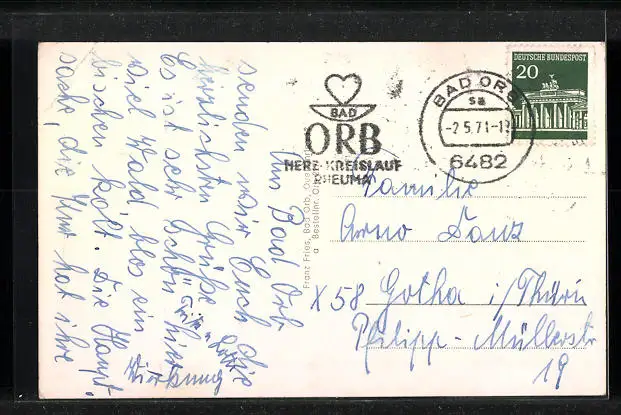 Aus Bad Orb
senden wir Euch die
herzlichsten Grüße
Es ist sehr schön hier
viel Wald blos ein
bischen kalt. Die Haupt-
sache, die Kur hat ihre
Wirkung
Franz Fries, Bad Orb
BAD
ORB
HERZ-KREISLAUF
RHEUMA
BAD ORB
sa
-2.5.71-1
6482
DEUTSCHE BUNDESPOST
20
Familie
Arno Danz
X 58 Gotha i/Thürin
Philipp-Müllerstr
19